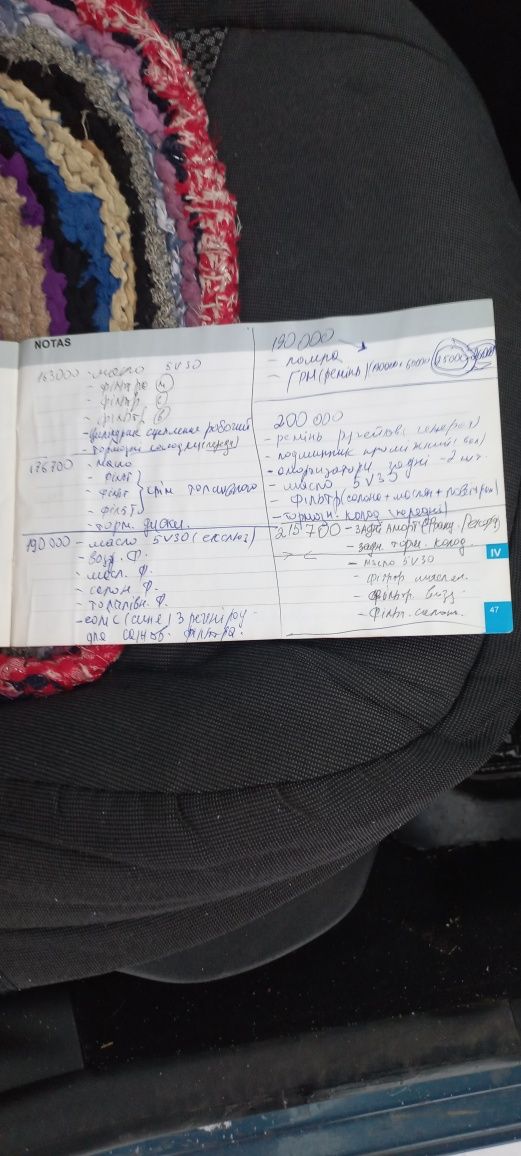 NOTAS
163000 - масло 5V30
- фільтр (м)
- фільтр (с)
- фільтр (в)
- циліндр сцепления робочий
- тормозні колодки (перед)
176700 - масло
- фільт
- фільт } крім топливного
- фільт
- торм. диски.
190000 - масло 5V30
- возд. Ф.
- масл. Ф.
- салон Ф.
- топлівн. Ф.
для Фільтра.
190000
- помпа
- ГРМ (ремінь)
200000
- ремінь
- подшипник проміжний
- амортизатори задні - 2 шт.
- масло 5V30
- Фільтр (салона + маслян + повітрян)
- тормозн. колод
215700 - задні аморт
- задн торм. колод.
- масло 5V30
- фільтр маслян.
- фільтр. возд.
- Фільт. салон.
IV
47